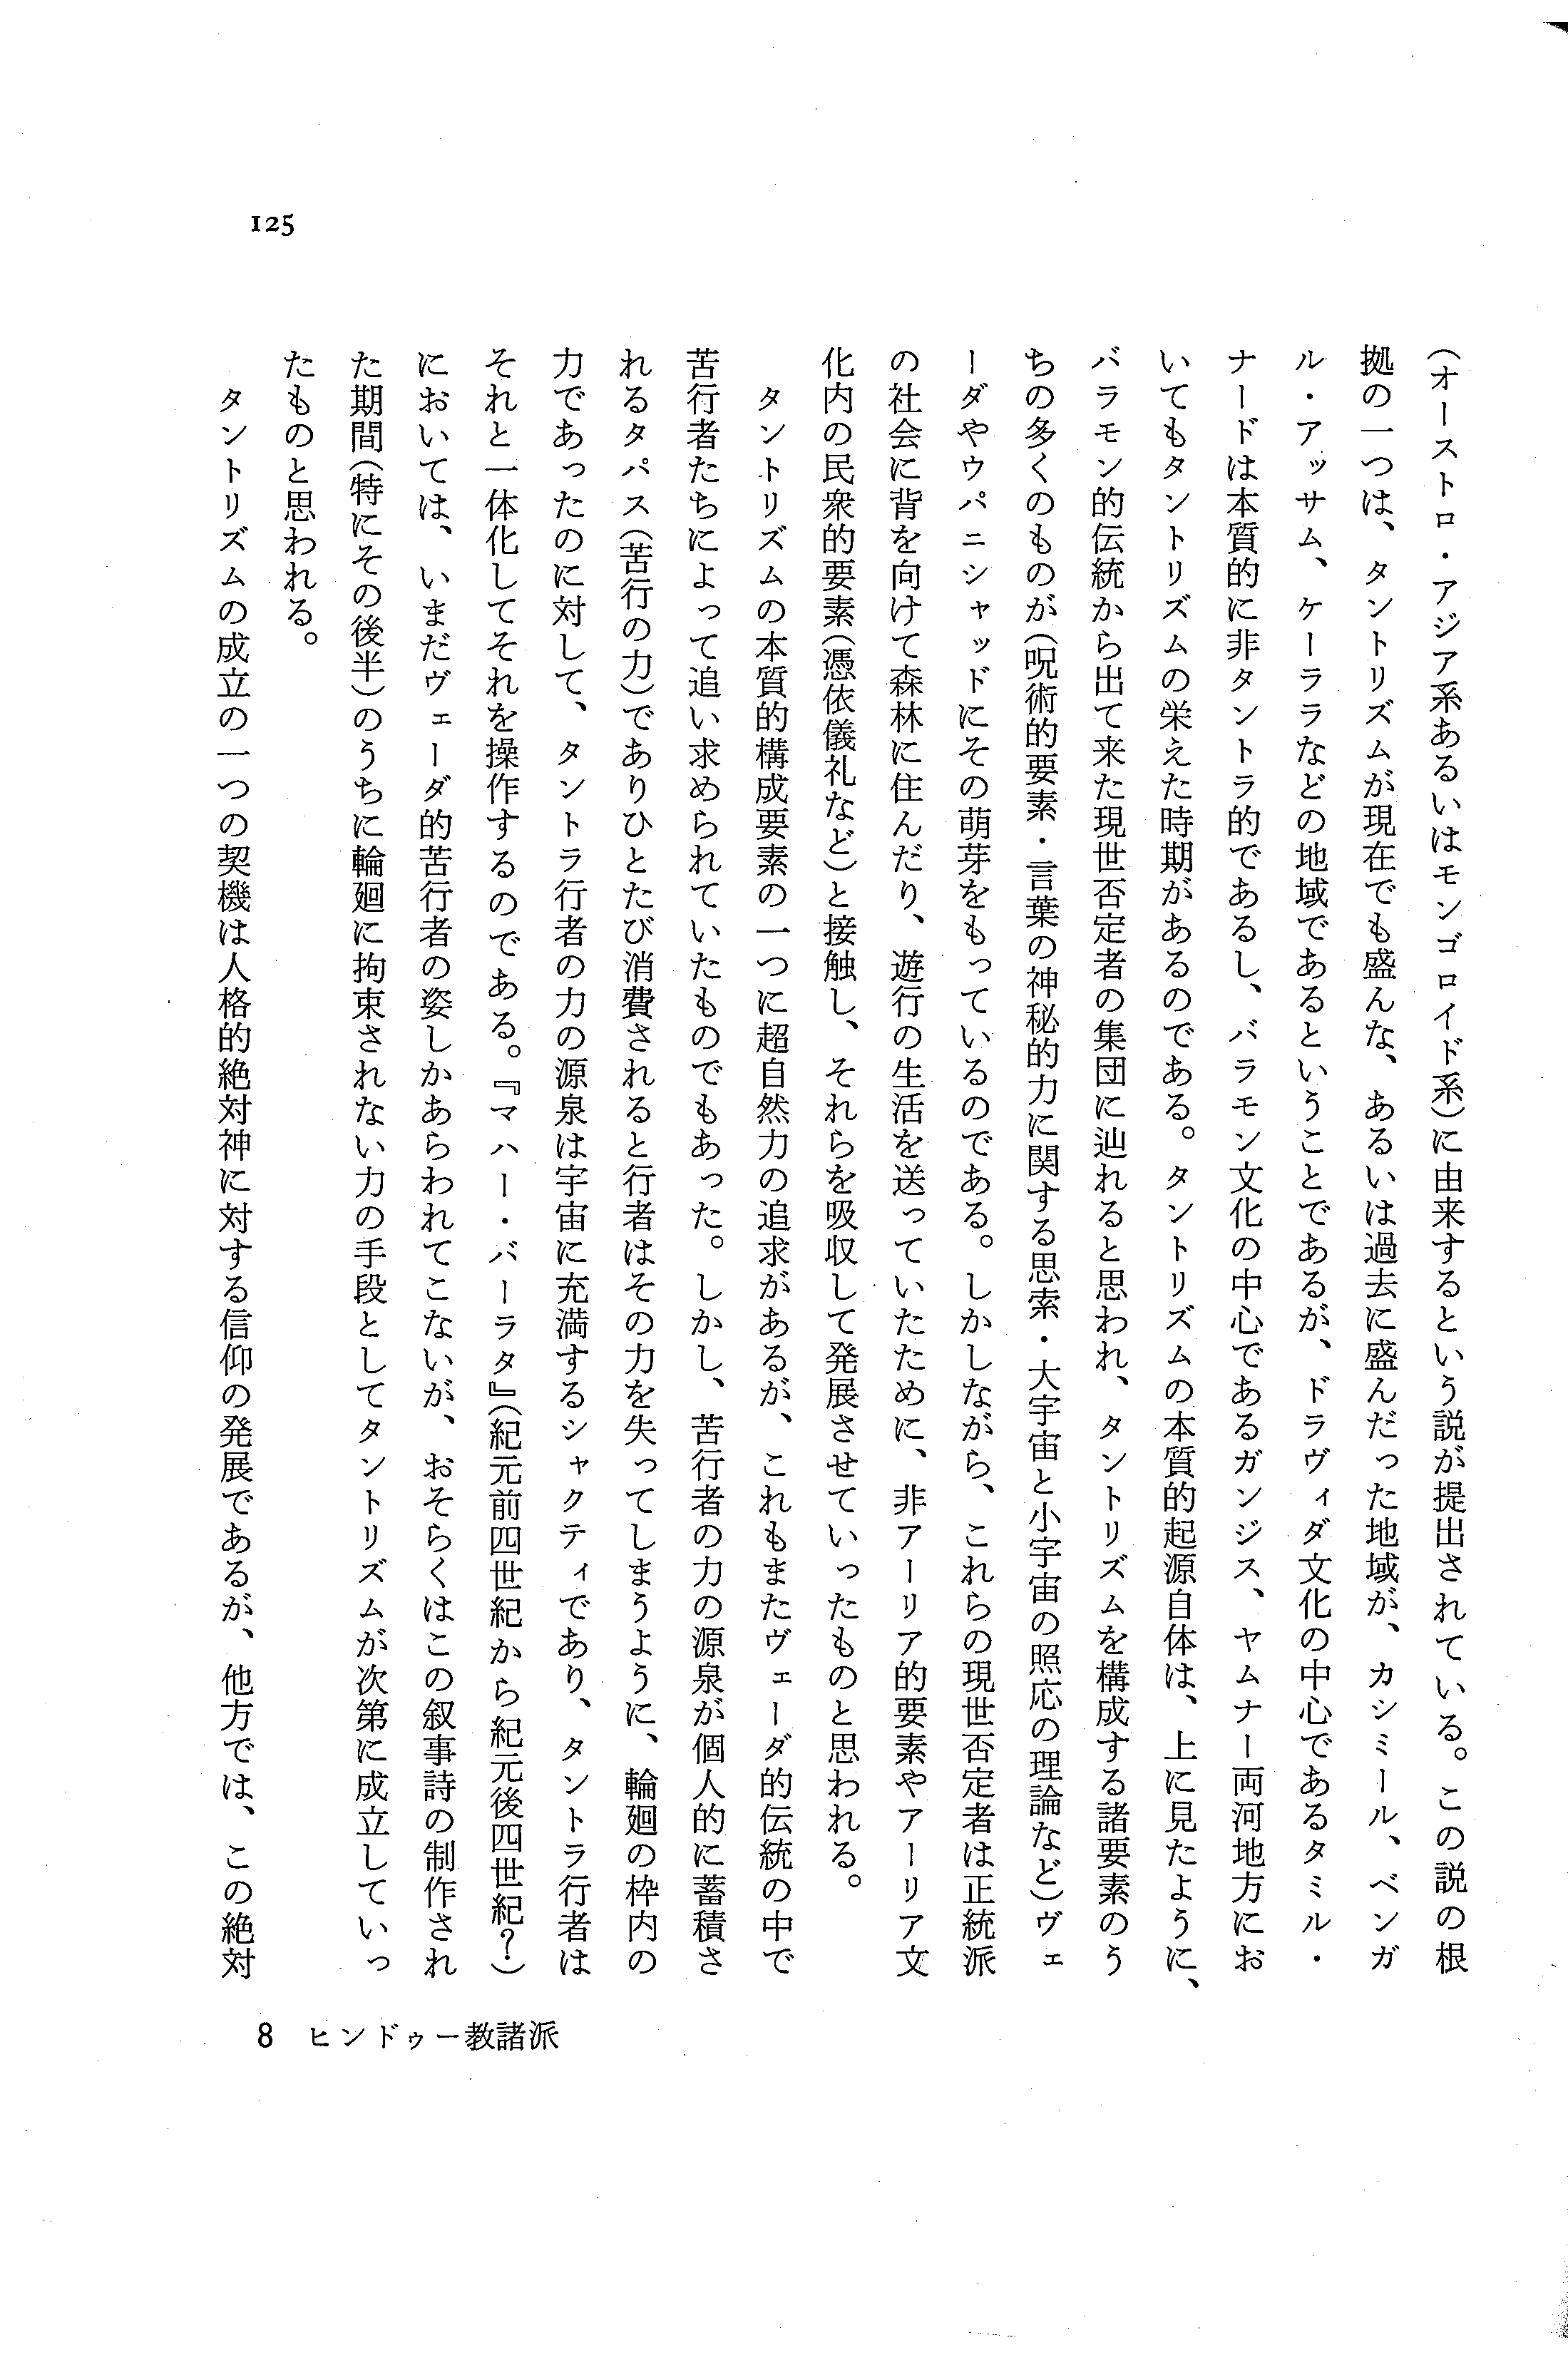 125
(オーストロ・アジア系あるいはモンゴロイド系)に由来するという説が提出されている。この説の根
拠の一つは、タントリズムが現在でも盛んな、あるいは過去に盛んだった地域が、カシミール、ベンガ
ル・アッサム、ケーララなどの地域であるということであるが、ドラヴィダ文化の中心であるタミル・
ナードは本質的に非タントラ的であるし、バラモン文化の中心であるガンジス、ヤムナー両河地方にお
いてもタントリズムの栄えた時期があるのである。タントリズムの本質的起源自体は、上に見たように、
バラモン的伝統から出て来た現世否定者の集団に辿れると思われ、タントリズムを構成する諸要素のう
ちの多くのものが(呪術的要素・言葉の神秘的力に関する思索・大宇宙と小宇宙の照応の理論など)ヴェ
ーダやウパニシャッドにその萌芽をもっているのである。しかしながら、これらの現世否定者は正統派
の社会に背を向けて森林に住んだり、遊行の生活を送っていたために、非アーリア的要素やアーリア文
化内の民衆的要素(憑依儀礼など)と接触し、それらを吸収して発展させていったものと思われる。
タントリズムの本質的構成要素の一つに超自然力の追求があるが、これもまたヴェーダ的伝統の中で
苦行者たちによって追い求められていたものでもあった。しかし、苦行者の力の源泉が個人的に蓄積さ
れるタパス(苦行の力)でありひとたび消費されると行者はその力を失ってしまうように、輪廻の枠内の
力であったのに対して、タントラ行者の力の源泉は宇宙に充満するシャクティであり、タントラ行者は
それと一体化してそれを操作するのである。『マハー・バーラタ』(紀元前四世紀から紀元後四世紀?)
においては、いまだヴェーダ的苦行者の姿しかあらわれてこないが、おそらくはこの叙事詩の制作され
た期間(特にその後半)のうちに輪廻に拘束されない力の手段としてタントリズムが次第に成立していっ
たものと思われる。
タントリズムの成立の一つの契機は人格的絶対神に対する信仰の発展であるが、他方では、この絶対
8 ヒンドゥー教諸派